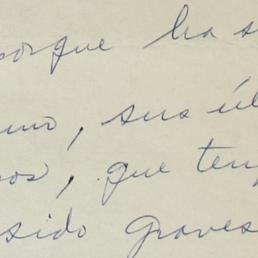 porque ha s
uno, sus úl
os, que ten
sido graves